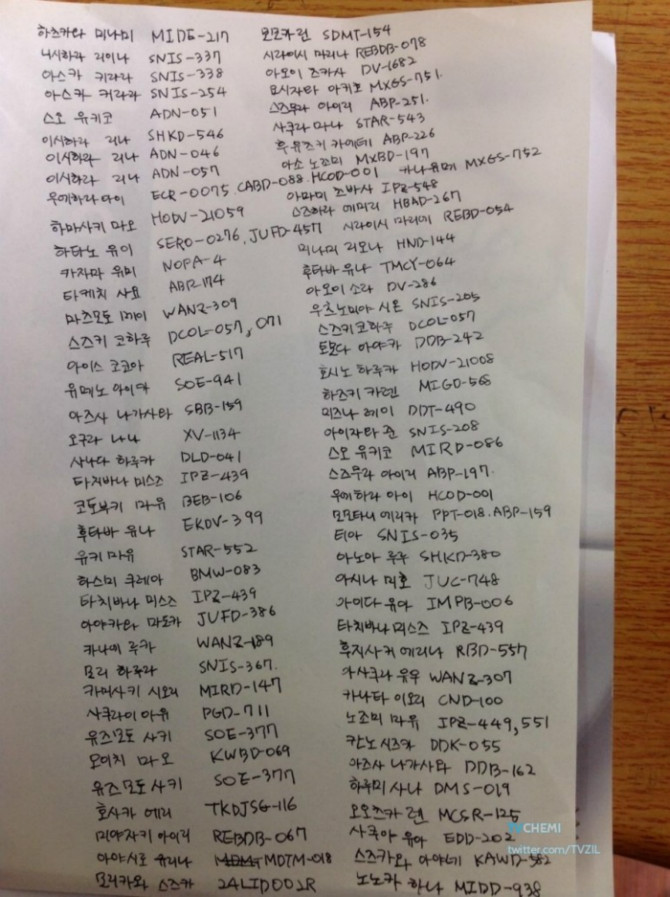 하즈키타 미나미 MIDE-217
니시하라 리이나 SNIS-337
아스카 키라라 SNIS-338
아스카 키라라 SNIS-254
스오 유키코 ADN-051
이시하라 리나 SHKD-546
이시하라 리나 ADN-046
이시하라 리나 ADN-057
우에하라 아이 ECR-0075. CABD-088. HCOD-001
하마사키 마오 HODV-21059
하타노 유이 SERO-0276, JUFD-457
카자마 유미 NOPA-4
타케치 사요 ABR174
마츠모토 메이 WANZ-309
스즈키 코하루 DCOL-057, 071
아이스 코코아 REAL-517
유메노 아이카 SOE-941
아즈사 나가사와 SBB-159
오구라 나나 XV-1134
사나다 하루카 DLD-041
타치바나 미스즈 IPZ-439
코토부키 마유 BEB-106
후타바 유나 EKDV-399
유키 마유 STAR-552
하스미 쿠레아 BMW-083
타치바나 미스즈 IPZ-439
아야카와 마도카 JUFD-386
카나메 루카 WANZ-189
모리 하루라 SNIS-367.
카와사키 시오리 MIRD-147
사쿠라이 아유 PGD-711
유즈모토 사키 SOE-377
오이치 마오 KWBD-069
유즈모토 사키 SOE-377
호사카 에리 TKDJSG-116
미야자키 아이리 REBDB-067
아야시로 유리나 MDTM-018
모리카와 스즈카 24LID002R
오오카 련 SDMT-154
시라이시 마리나 REBDB-078
아오이 츠카사 DV-1682
요시자와 아키호 MXGS-751.
스즈무라 아이리 ABP-251.
사쿠라 마나 STAR-543
후유즈키 카에데 ABP-226
아소 노조미 MXBD-197
카나 유메 MXGS-752
아마미 츠바사 IPZ-548
스즈하라 에미리 HBAD-267
시라이시 마리에 REBD-054
미나미 리오나 HND-144
후타바 유나 TMCY-064
아오이 소라 DV-286
우츠노미야 시온 SNIS-205
스즈키 코하루 DCOL-057
토모다 아야카 DDB-242
호시노 하루카 HODV-21008
하즈키 카렌 MIGD-568
미즈나 레이 DDT-490
아이자와 준 SNIS-208
스오 유키코 MIRD-086
스즈무라 아이리 ABP-197.
우에하라 아이 HCOD-001
모모타니 에리카 PPT-018. ABP-159
티아 SNIS-035
아노아 루루 SHKD-380
아시나 미호 JUC-748
가이다 유아 IMPB-006
타치바나 미스즈 IPZ-439
후지사키 에리나 RBD-557
아사쿠라 유우 WANZ-307
카나타 이오리 CND-100
노조미 마유 IPZ-449, 551
칸노 시즈카 DDK-055
아즈사 나가사와 DDB-162
하루미 사나 DMS-019
오오츠카 련 MCSR-125
사쿠아 유아 EDD-202
스즈카와 아야네 KAWD-582
노노카 하나 MIDD-938
CHEMI
twitter.com/TVZIL